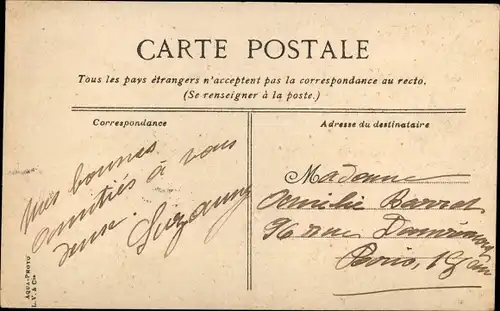 CARTE POSTALE
Tous les pays étrangers n'acceptent pas la correspondance au recto.
(Se renseigner à la poste.)
Correspondance
Adresse du destinataire
Mes bonnes
amitiés à vous
Suzanne
Madame
Amélie Barrat
96 rue
Paris, 18
AQUA-PHOTO
L.V. & Cie